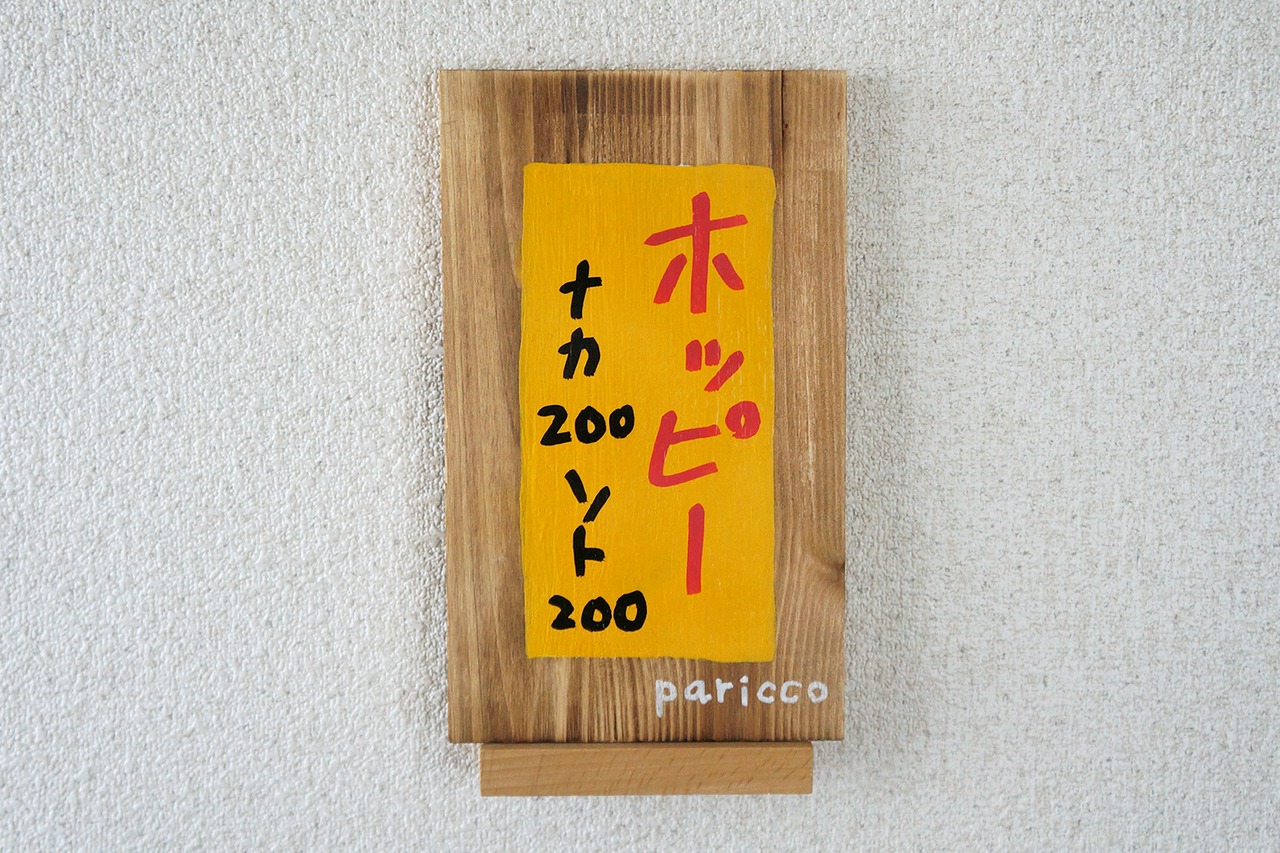 ホッピー
ナカ200ソト200
paricco